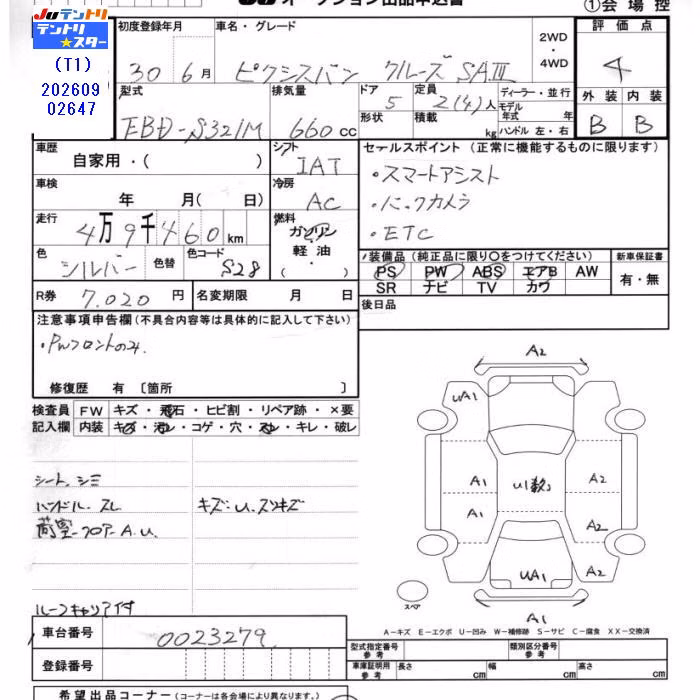 JUテントリ
テントリ
★スター
(T1)
202609
02647
JU オークション出品申込書
①会場控
初度登録年月
30 6月
車名・グレード
ピクシスバン クルーズ SAⅢ
2WD
・
4WD
評価点
4
外装 内装
B B
型式
EBD-S321M
排気量
660cc
ドア
5
形状
定員
2(4)人
積載
kg
ディーラー・並行
モデル年式 年
ハンドル 左・右
車歴
自家用・( )
シフト
IAT
車検
年 月( 日)
冷房
AC
走行
4万9千460km
燃料
ガソリン
軽油
・
色
シルバー
色替
色コード
S28
R券
7.020円
名変期限 月 日
セールスポイント(正常に機能するものに限ります)
・スマートアシスト
・バックカメラ
・ETC
装備品(純正品に限り○をつけてください)
PS PW ABS エアB AW
SR ナビ TV カワ
新車保証書
有・無
後日品
注意事項申告欄(不具合内容等は具体的に記入して下さい)
・PWフロントのみ.
修復歴 有〔箇所 〕
検査員
記入欄
FW キズ・飛石・ヒビ割・リペア跡・×要
内装 キズ・汚レ・コゲ・穴・スレ・キレ・破レ
シート、シミ
ハンドル.スレ キズ・U.スリキズ
荷室-フロアー A.U.
ルーフキャリア付
A2
UA1
A1
A1
U1数コ
A2
A2
UA1
A1
スペア
A-キズ E-エクボ U-凹み W-補修跡 S-サビ C-腐食 XX-交換済
車台番号
0023279
登録番号
型式指定番号
参考
類別区分番号
参考
車庫証明用
参考
長さ cm
幅 cm
高さ cm
希望出品コーナー(コーナーは各会場により異なります。)